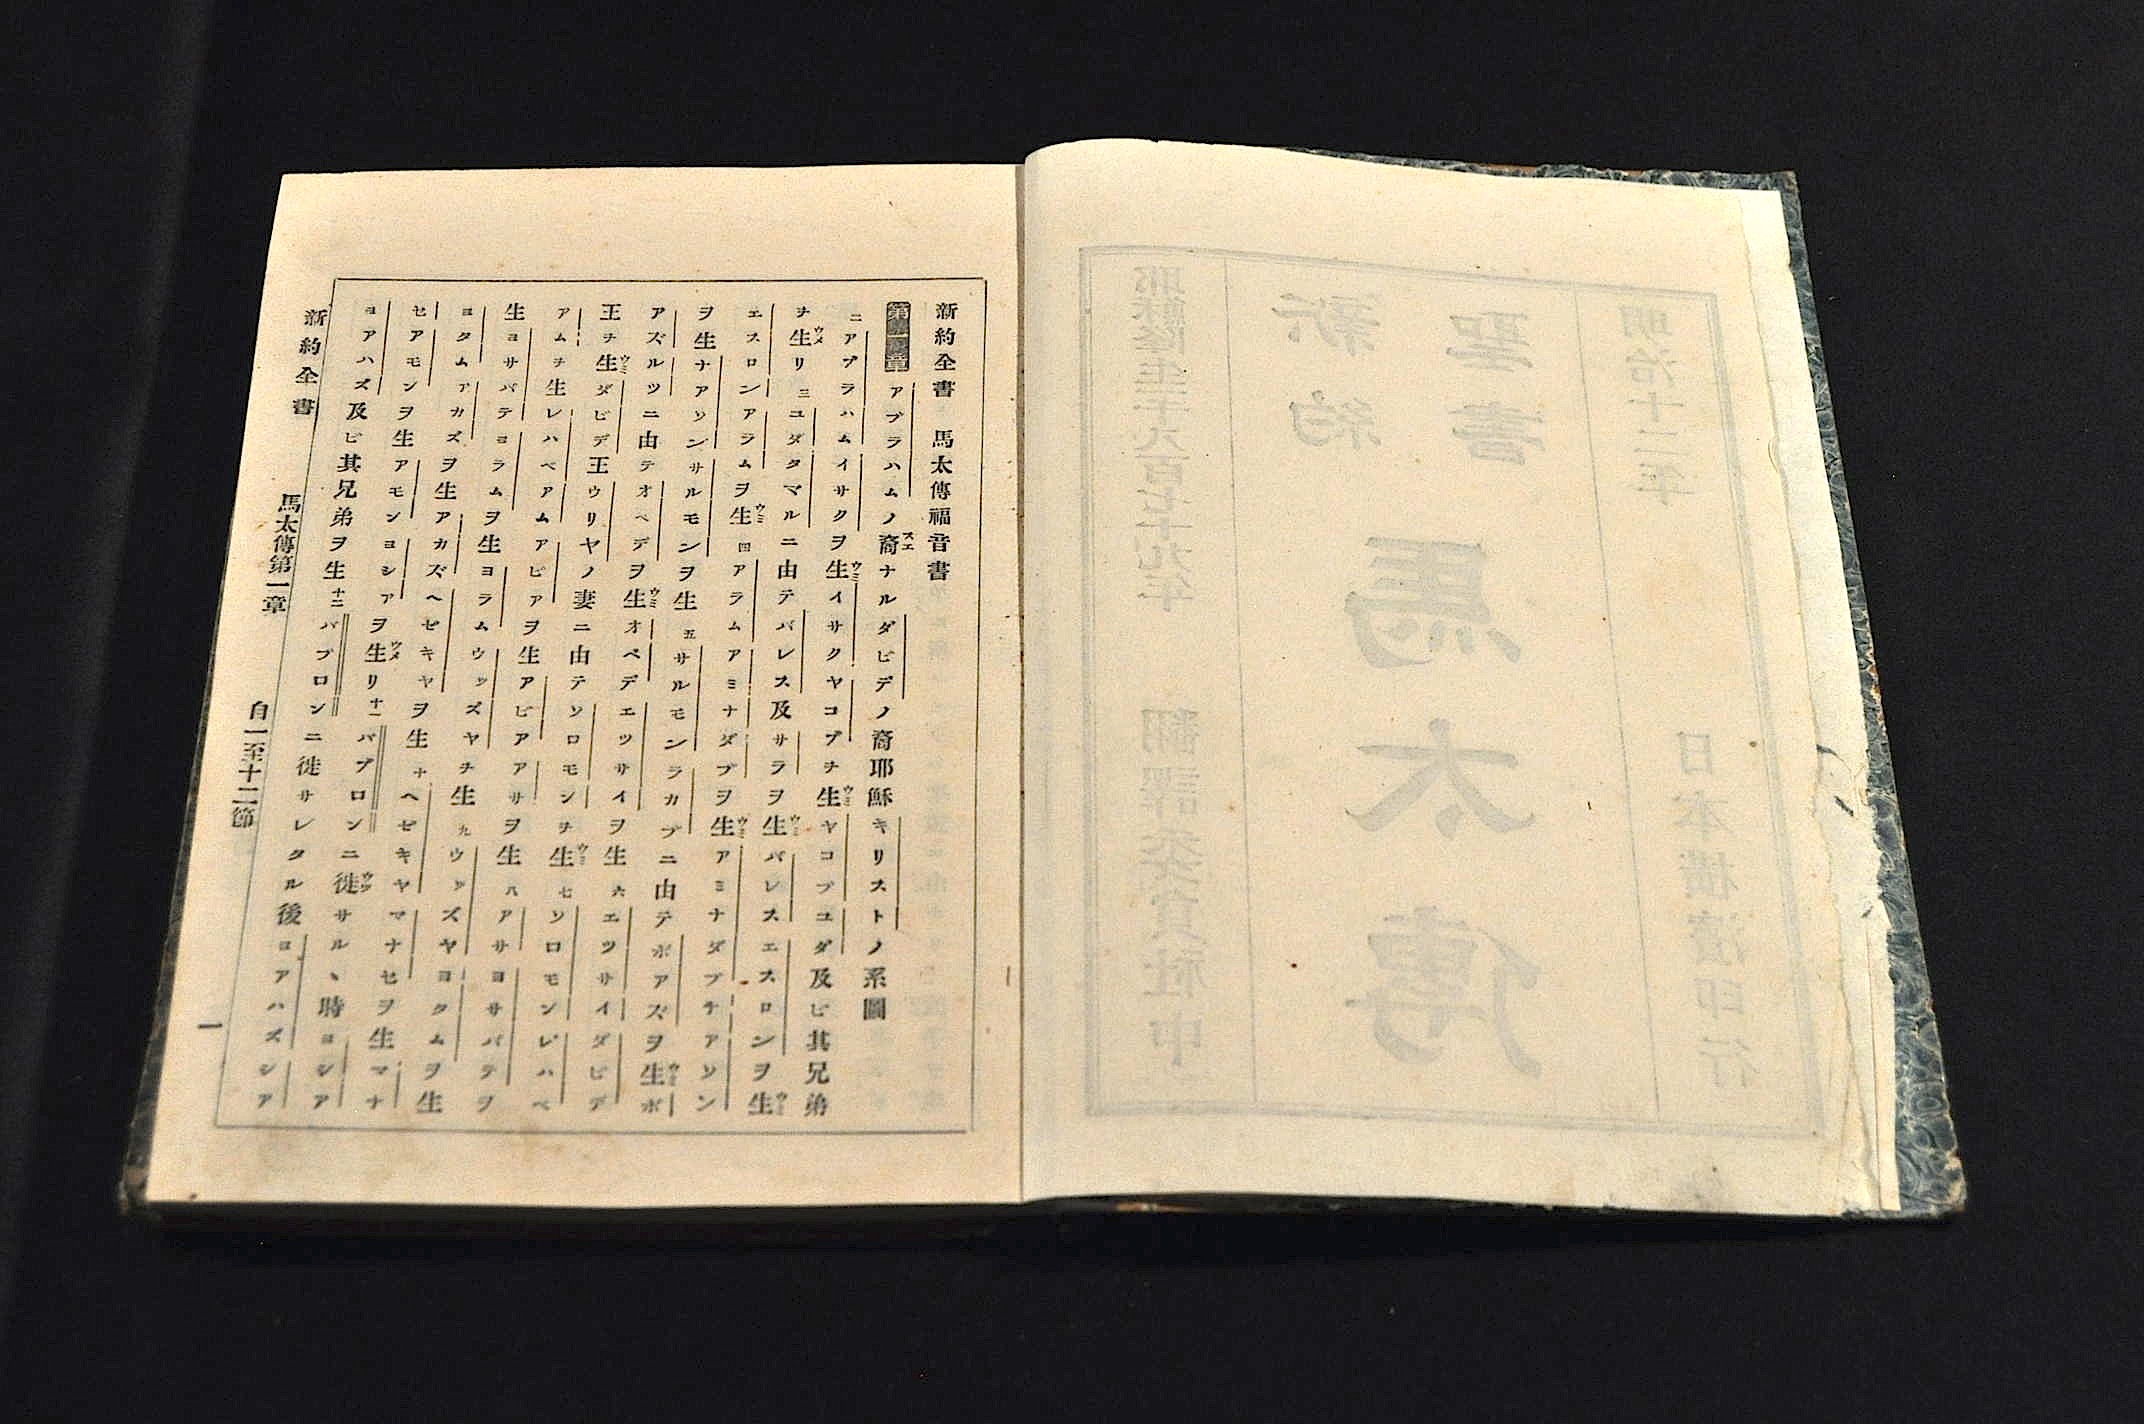 明治十二年 日本横濱印行
聖書
新約
馬太傳
耶穌降生千八百七十九年 翻譯委員社中
新約全書 馬太傳福音書
第一章 アブラハムノ裔ナルダビデノ裔耶穌キリストノ系圖
二アブラハムイサクヲ生イサクヤコブヲ生ヤコブユダ及ビ其兄弟
ヲ生リ 三ユダタマルニ由テパレス及サラヲ生パレスエスロンヲ生
エスロンアラムヲ生 四アラムアミナダブヲ生アミナダブナアソン
ヲ生ナアソンサルモンヲ生 五サルモンラカブニ由テボアズヲ生ボ
アズルツニ由テオベデヲ生オベデエツサイヲ生 六エツサイダビデ
王ヲ生ダビデ王ウリヤノ妻ニ由テソロモンヲ生 七ソロモンレハベ
アムヲ生レハベアムアビアヲ生アビアアサヲ生 八アサヨサパテヲ
生ヨサパテヨラムヲ生ヨラムウッズヤヲ生 九ウッズヤヨタムヲ生
ヨタムアカズヲ生アカズヘゼキヤヲ生 十ヘゼキヤマナセヲ生マナ
セアモンヲ生アモンヨシアヲ生リ 十一バブロンニ徙サルヽ時ヨシア
ヨアハズ及ビ其兄弟ヲ生 十二バブロンニ徙サレタル後ヨアハズシア
新約全書 馬太傳第一章 自一至十二節 一